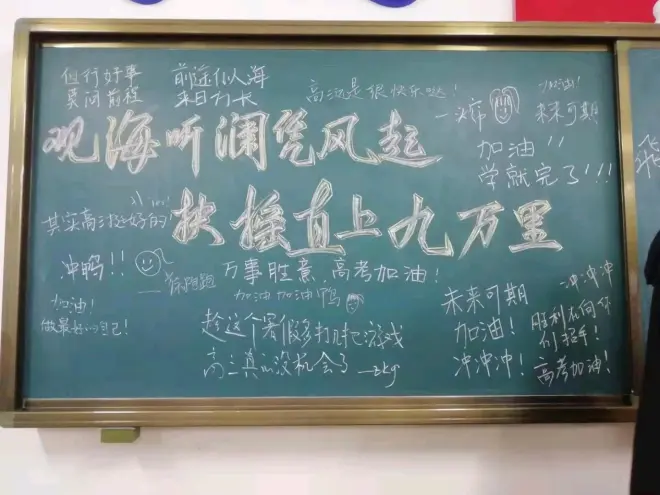 但行好事
莫问前程
前途似海
来日方长
高三还是很快乐哒！
加油！
未来可期
观海听澜凭风起
加油！！
学就完了！！！
扶摇直上九万里
其实高三挺好的
冲鸭！！
万事胜意、高考加油！
加油加油鸭
加油！
做最好的自己！
趁这个暑假多打几把游戏
高三真的没机会了 —zkg
未来可期
加油！
冲冲冲！
冲冲冲
胜利在向你
们招手！
高考加油！